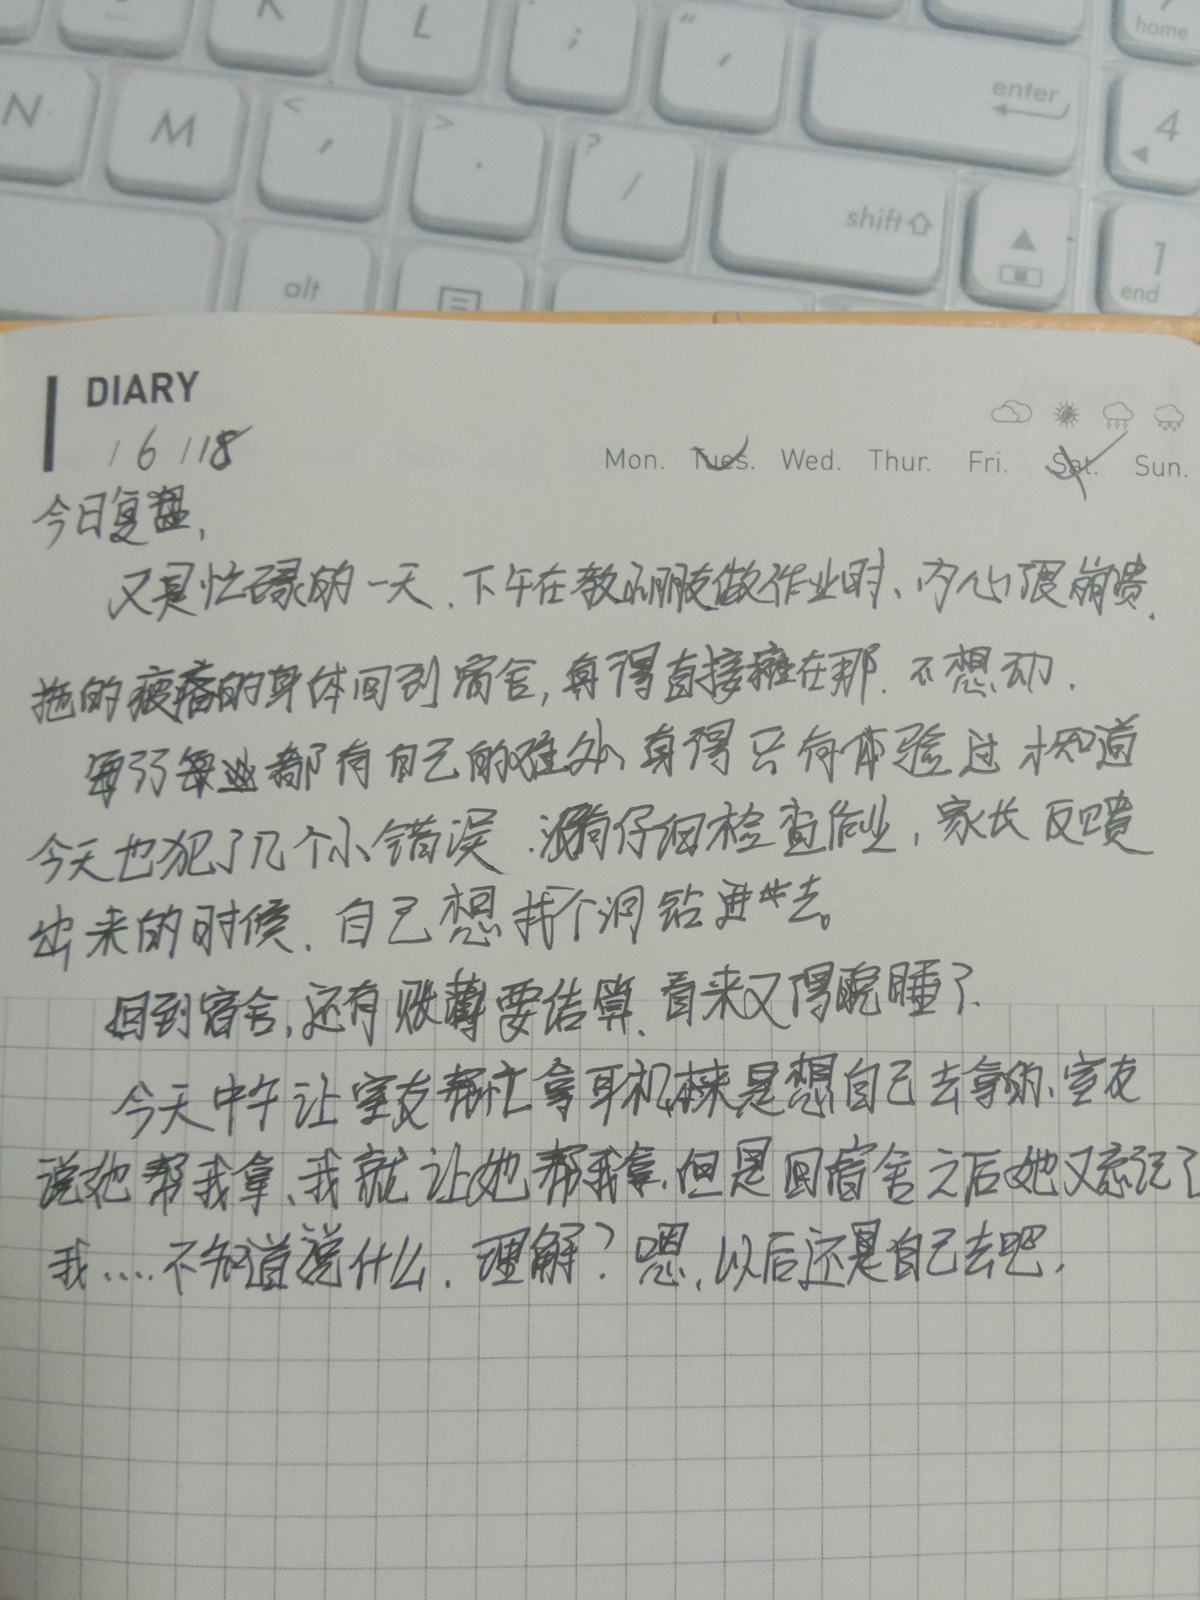 K
L
;
"
,
enter
home
N
M
<
,
>
.
?
/
shift
4
alt
1
end
DIARY
16 118
Mon. Tues. Wed. Thur. Fri. Sat. Sun.
今日复盘,
又是忙碌的一天.下午在教小朋友做作业时、内心很崩溃.
拖的疲惫的身体回到宿舍,真得直接瘫在那.不想动.
每行每业都有自己的难处、真得只有体验过才知道
今天也犯了几个小错误.没有仔细检查作业,家长反馈
出来的时候.自己想找个洞钻进去。
回到宿舍,还有账薄要结算.看来又得晚睡了.
今天中午让室友帮忙拿耳机本来是想自己去拿的、室友
说她帮我拿、我就让她帮我拿.但是回宿舍之后她又忘记了
我....不知道说什么.理解?嗯,以后还是自己去吧.